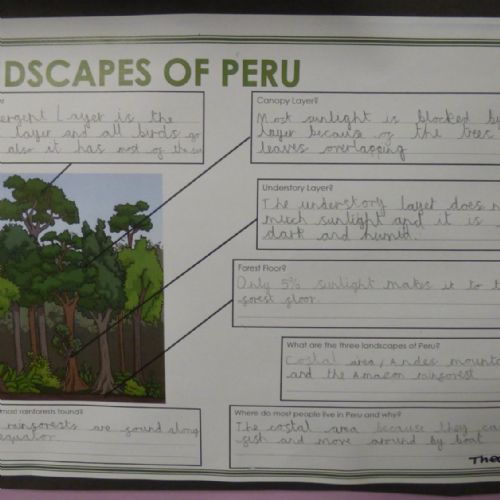 DSCAPES OF PERU
ergent Layer is the
layer and all birds go
also it has most of the sun
Canopy Layer?
Most sunlight is blocked by
layer because of the trees
leaves overlapping
Understory Layer?
The understory layer does n
much sunlight and it is
dark and humid.
Forest Floor?
Only 5% sunlight makes it to t
forest floor
What are the three landscapes of Peru?
Costal area, Andes mounta
and the Amazon rainforest
most rainforests found?
rainforests are found along
equator
Where do most people live in Peru and why?
The costal area because they ca
fish and move around by boat
Theo